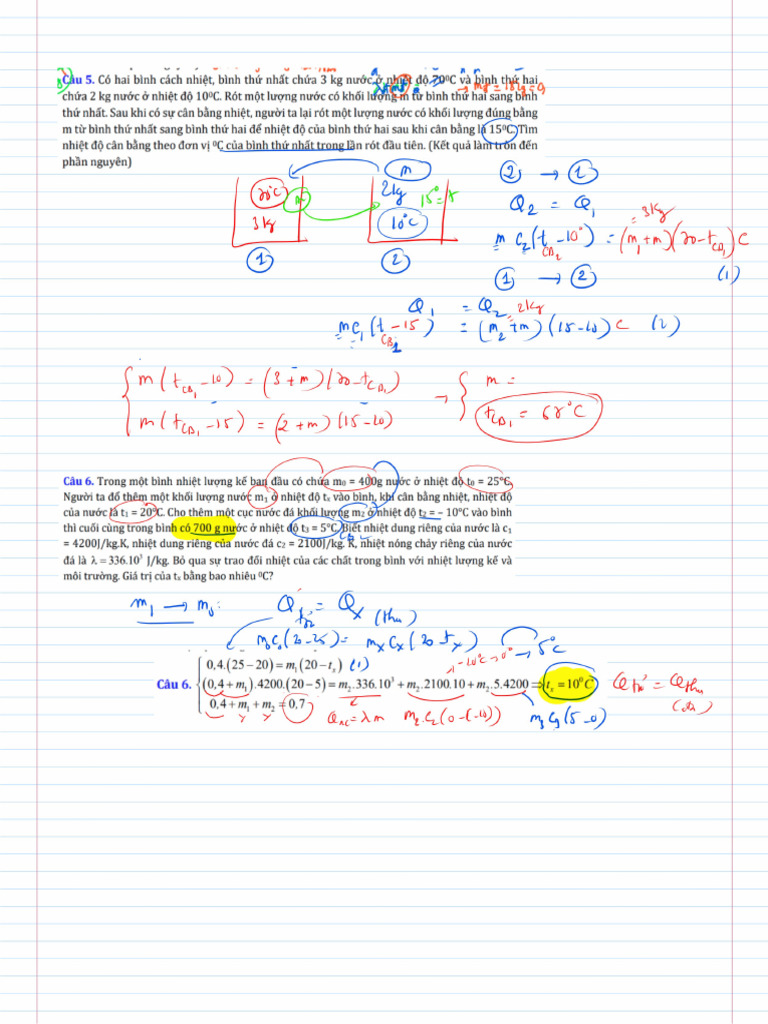 Câu 5. Có hai bình cách nhiệt, bình thứ nhất chứa 3 kg nước ở nhiệt độ 70⁰C và bình thứ hai
chứa 2 kg nước ở nhiệt độ 10⁰C. Rót một lượng nước có khối lượng m từ bình thứ hai sang bình
thứ nhất. Sau khi có sự cân bằng nhiệt, người ta lại rót một lượng nước có khối lượng đúng bằng
m từ bình thứ nhất sang bình thứ hai để nhiệt độ của bình thứ hai sau khi cân bằng là 15⁰C. Tìm
nhiệt độ cân bằng theo đơn vị ⁰C của bình thứ nhất trong lần rót đầu tiên. (Kết quả làm tròn đến
phần nguyên)
m
70°C 2kg 15° = t
3kg m 10°C
1 2
2 → 1
Q₂ = Q₁
= 3kg
m C₂(t_CB₂ - 10°) = (m₁ + m)(70 - t_CB₁)C (1)
1 → 2
Q₁ = Q₂
2kg
mC₁(t_CB₁ - 15) = (m₂ + m)(15 - 10)C (2)
m(t_CB₁ - 10) = (3 + m)(70 - t_CB₁) → m =
m(t_CB₁ - 15) = (2 + m)(15 - 10) t_CB₁ = 68°C
Câu 6. Trong một bình nhiệt lượng kế ban đầu có chứa m₀ = 400g nước ở nhiệt độ t₀ = 25⁰C.
Người ta đổ thêm một khối lượng nước m₁ ở nhiệt độ tₓ vào bình, khi cân bằng nhiệt, nhiệt độ
của nước là t₁ = 20⁰C. Cho thêm một cục nước đá khối lượng m₂ ở nhiệt độ t₂ = – 10⁰C vào bình
thì cuối cùng trong bình có 700 g nước ở nhiệt độ t₃ = 5⁰C. Biết nhiệt dung riêng của nước là c₁
= 4200J/kg.K, nhiệt dung riêng của nước đá c₂ = 2100J/kg. K, nhiệt nóng chảy riêng của nước
đá là λ = 336.10³ J/kg. Bỏ qua sự trao đổi nhiệt của các chất trong bình với nhiệt lượng kế và
môi trường. Giá trị của tₓ bằng bao nhiêu ⁰C?
m₁ → m₀: Q_toả = Qₓ (thu)
m₀C₀(20-25) = mₓCₓ(20 - tₓ)
-10°C → 0° → 5°C
0,4.(25 − 20) = m₁(20 − tₓ) (1)
Câu 6. (0,4 + m₁).4200.(20 − 5) = m₂.336.10³ + m₂.2100.10 + m₂.5.4200 ⇒ tₓ = 10⁰C Q toả = Q thu
0,4 + m₁ + m₂ = 0,7 Q_nc = λm m₂.C₂(0-(-10)) m₃C₃(5-0)